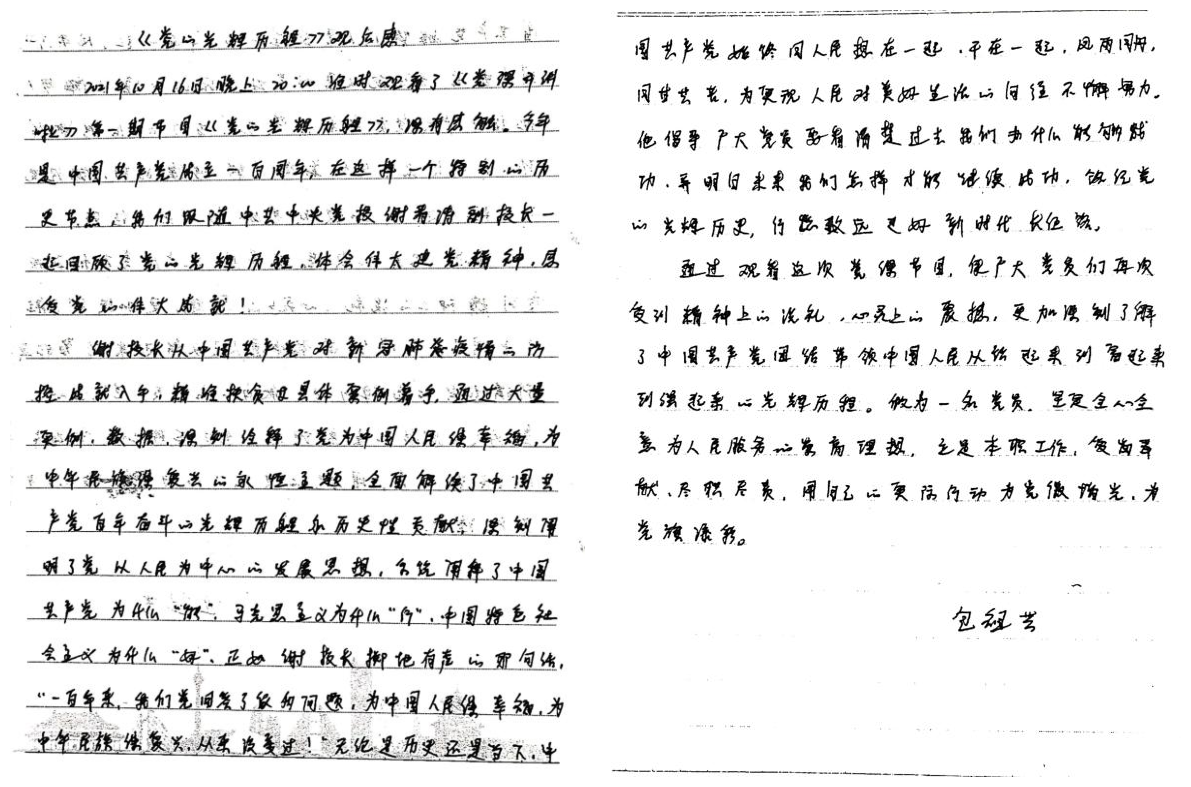 《党的光辉历程》观后感
2021年10月16日晚上20:00准时观看了《党课开讲
啦》第一期节目《党的光辉历程》，深有感触。今年
是中国共产党成立一百周年，在这样一个特别的历
史节点，我们跟随中共中央党校谢春涛副校长一
起回顾了党的光辉历程，体会伟大建党精神，感
受党的伟大成就！
谢校长从中国共产党对新冠肺炎疫情的防
控成就入手，精准扶贫及具体案例着手，通过大量
实例、数据，深刻诠释了党为中国人民谋幸福，为
中华民族谋复兴的永恒主题，全面解读了中国共
产党百年奋斗的光辉历程和历史性贡献，深刻阐
明了党以人民为中心的发展思想，系统阐释了中国
共产党为什么“能”，马克思主义为什么“行”，中国特色社
会主义为什么“好”。正如谢校长掷地有声的那句话，
“一百年来，我们党回答了很多问题，为中国人民谋幸福，为
中华民族谋复兴，从来没变过！”无论是历史还是当下，中
国共产党始终同人民想在一起，干在一起，风雨同舟，
同甘共苦，为实现人民对美好生活的向往不懈努力。
他倡导广大党员要看清楚过去我们为什么能够成
功，弄明白未来我们怎样才能继续成功，
的光辉历史，行稳致远走好新时代长征路。
通过观看这次党课节目，使广大党员们再次
受到精神上的洗礼，心灵上的震撼，更加深刻了解
了中国共产党团结带领中国人民从站起来到富起来
到强起来的光辉历程。做为一名党员，坚定全心全
意为人民服务的崇高理想，立足本职工作，爱岗奉
献、尽职尽责，用自己的实际行动为党徽增光，为
党旗添彩。
包组芸